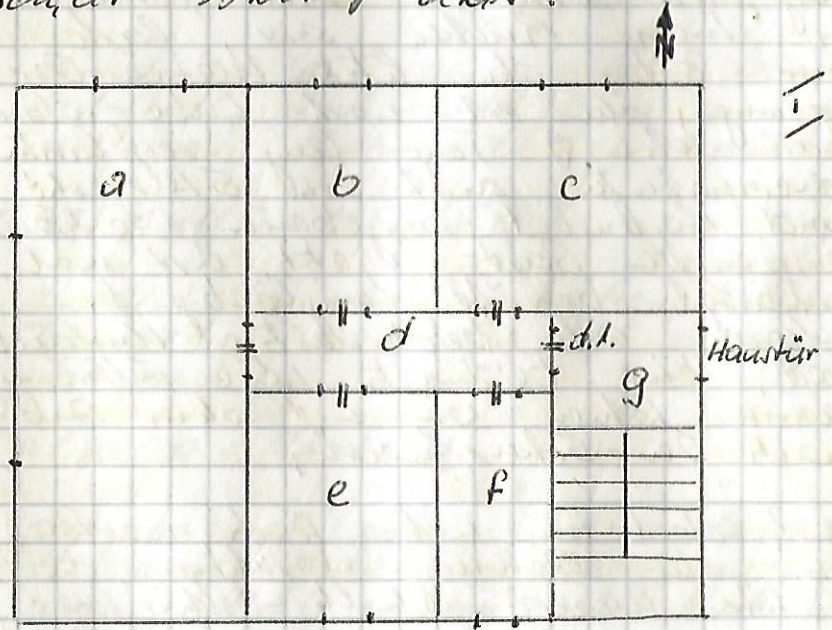 N
I
a
b
c
d
d.1.
Haustür
g
e
f